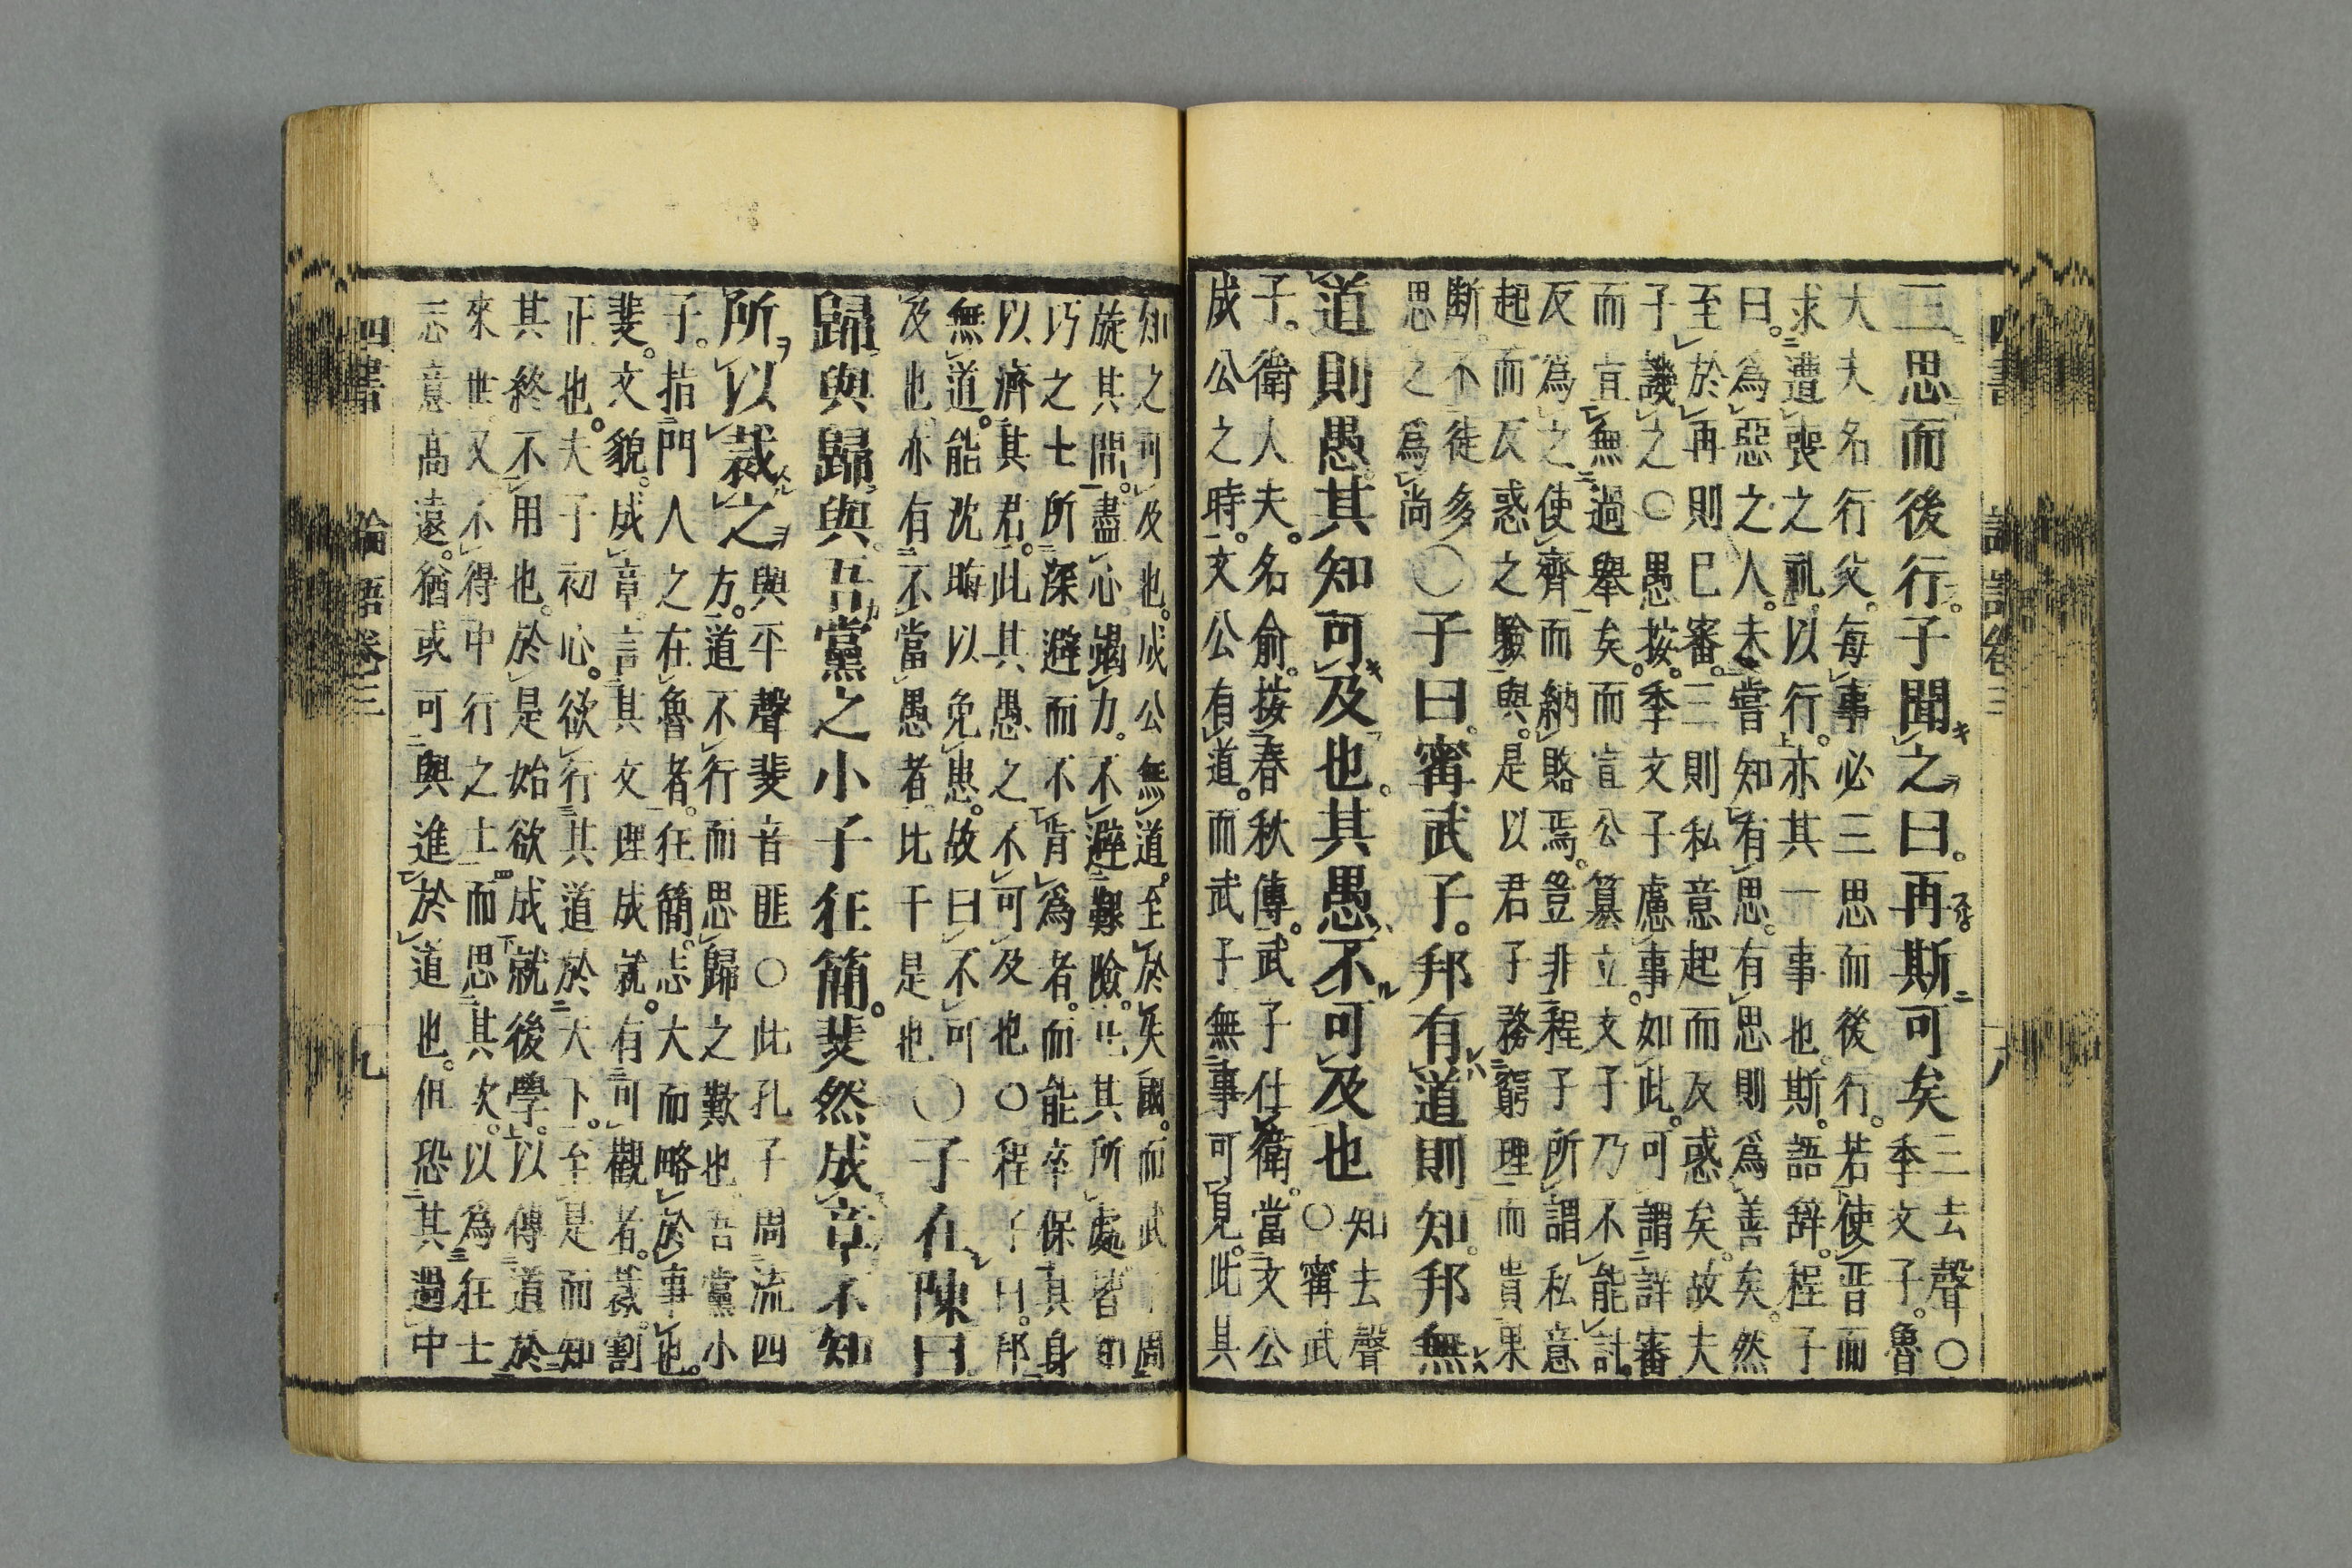 三思而後行。子聞之曰。再斯可矣
三去聲○
季文子。魯
大夫名行父。每事必三思而後行。若使晋而
求遭喪之禮以行。亦其一事也。斯。語辭。程子
曰。為惡之人。未嘗知有思。有思則為善矣。然
至於再則已審。三則私意起而反惑矣。故夫
子譏之○愚按。季文子慮事。如此。可謂詳審
而宜無過舉矣。而宣公篡立。文子乃不能討。
反為之使齊而納賂焉。豈非程子所謂私意
起而反惑之驗與。是以君子務窮理而貴果
斷。不徒多
思之為尚
○子曰。甯武子。邦有道則知。邦無
道則愚。其知可及也。其愚不可及也
知去聲
○甯武
子。衛人夫。名俞。按春秋傳。武子仕衛。當文公
成公之時。文公有道。而武子無事可見。此其
知之可及也。成公無道。至於失國。而武子周
旋其間。盡心竭力。不避艱險。凡其所處。皆知
巧之士所深避而不肯為者。而能卒保其身
以濟其君。此其愚之不可及也○程子曰。邦
無道。能沈晦以免患。故曰不可
及也。亦有不當愚者。比干是也
○子在陳曰。
歸與歸與。吾黨之小子狂簡。斐然成章。不知
所以裁之
與平聲斐音匪○此孔子周流四
方。道不行而思歸之歎也。吾黨小
子。指門人之在魯者。狂簡。志大而略於事也。
斐。文貌。成章。言其文理成就。有可觀者。裁。割
正也。夫子初心。欲行其道於天下。至是而知
其終不用也。於是始欲成就後學。以傳道於
來世。又不得中行之士。而思其次。以為狂士
志意高遠。猶或可與進於道也。但恐其過中
四書
論語卷三
九